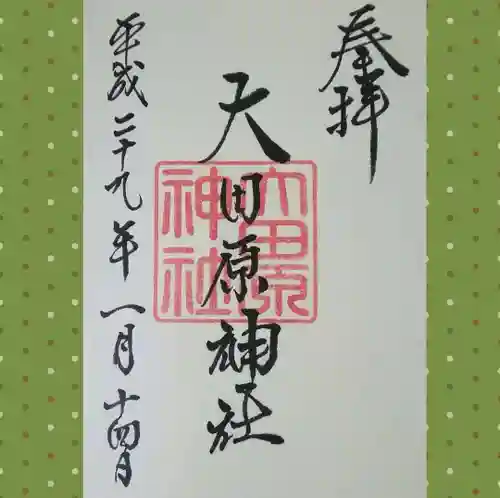 奉拝
大田原神社
大田原神社
平成二十九年一月十四日